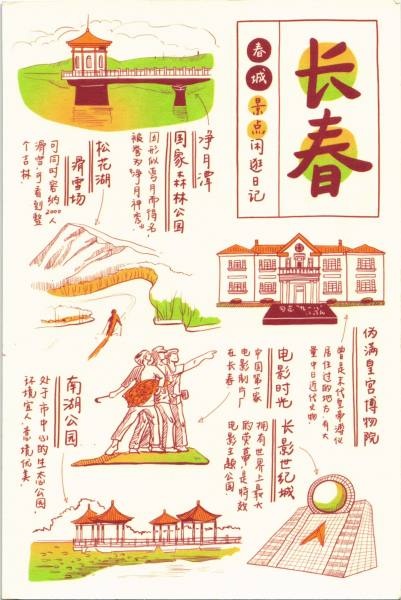 长春
春城景点闲逛日记
净月潭
国家森林公园
因形似弯月而得名,
被誉为“净月神秀”。
松花湖
滑雪场
可同时容纳2000人
滑雪,可看到整
个吉林。
伪满皇宫博物院
曾是末代皇帝溥仪
居住过的地方,有大
量中日近代文物。
电影时光
中国第一家
电影制片厂
在长春
长影世纪城
拥有世界上最大
的荧幕,是特效
电影主题公园
南湖公园
处于市中心的生态公园,
环境宜人,意境优美